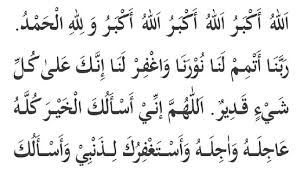 اَللهُ أَكْبَرُ اَللهُ أَكْبَرُ اَللهُ أَكْبَرُ وَ لِلهِ الْحَمْدُ.
رَبَّنَا أَتْمِمْ لَنَا نُوْرَنَا وَاغْفِرْ لَنَا إِنَّكَ عَلىٰ كُلِّ
شَيْءٍ قَدِيْرٌ. اَللّٰهُمَّ إِنِّيْ أَسْأَلُكَ الْخَيْرَ كُلَّهُ
عَاجِلَهُ وَاٰجِلَهُ وَأَسْتَغْفِرُكَ لِذَنْبِيْ وَأَسْأَلُكَ